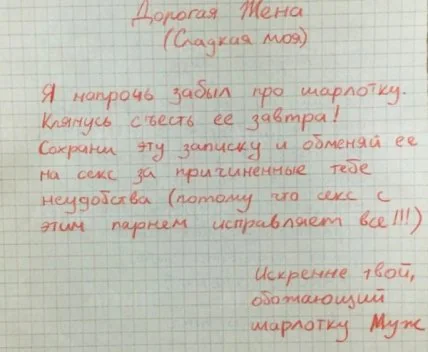 Дорогая Жена
(Сладкая моя)
Я напрочь забыл про шарлотку.
Клянусь съесть ее завтра!
Сохрани эту записку и обменяй ее
на секс за причиненные тебе
неудобства (потому что секс с
этим парнем исправляет все!!!)
Искренне твой,
обожающий
шарлотку Муж